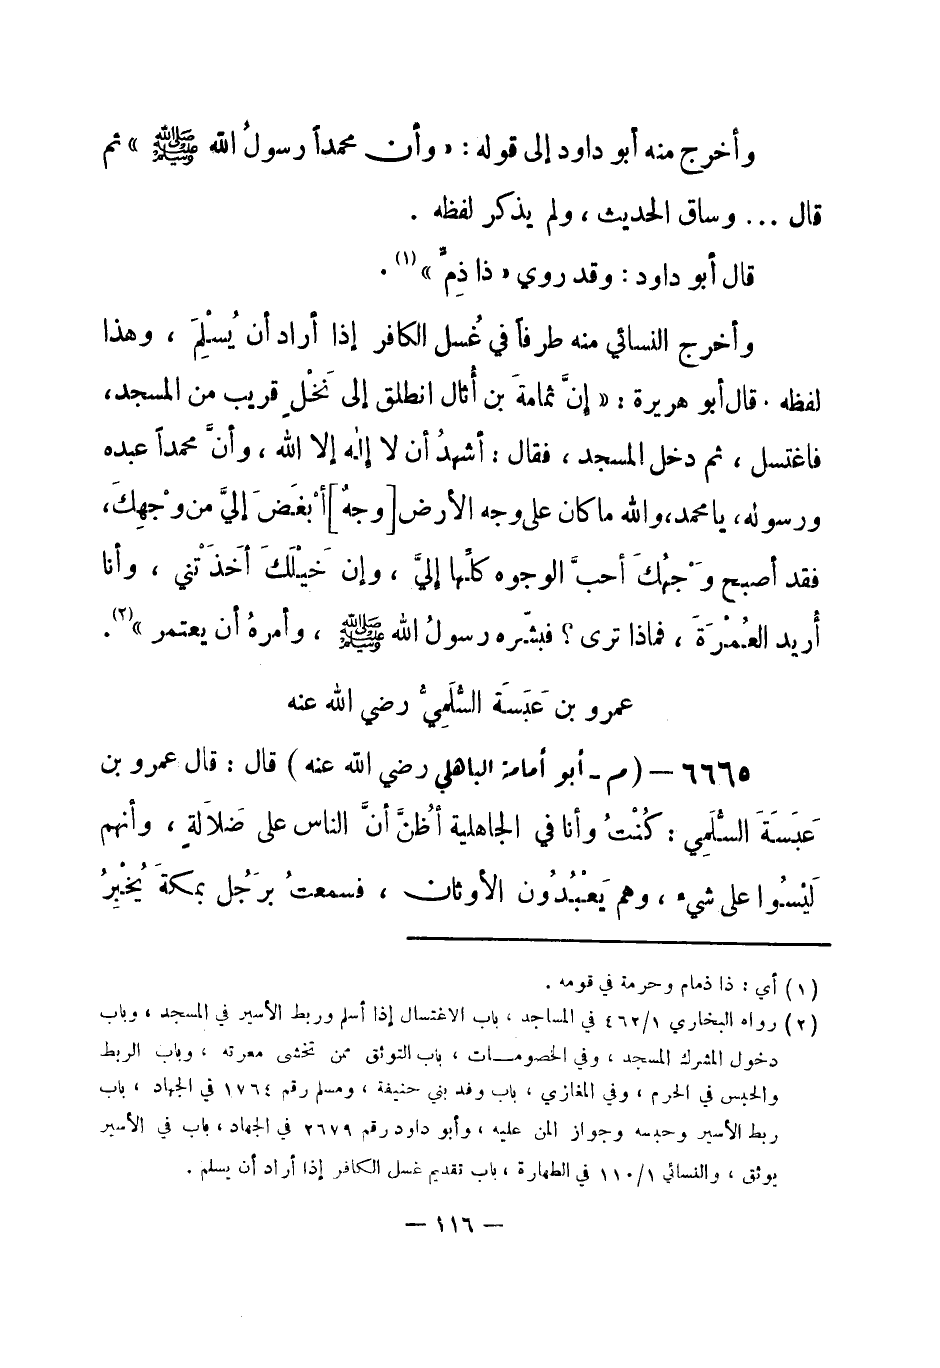 وأخرج منه أبو داود إلى قوله : « وأن محمداً رسولُ الله ﷺ » ثم
قال ... وساق الحديث ، ولم يذكر لفظه .
قال أبو داود : وقد روي « ذا ذِمٍّ » (١) .
وأخرج النسائي منه طرفاً في غُسل الكافر إذا أراد أن يُسْلِمَ ، وهذا
لفظه . قال أبو هريرة : « إنَّ ثمامةَ بن أُثال انطلق إلى نَخْلٍ قريب من المسجد ،
فاغتسل ، ثم دخل المسجد ، فقال : أشهدُ أن لا إله إلا الله ، وأنَّ محمداً عبده
ورسوله ، يا محمد ، والله ما كان على وجه الأرض [وجهٌ] أبْغَضَ إليَّ من وجْهِكَ ،
فقد أصبح وَجْهُكَ أحبَّ الوجوه كلِّها إليَّ ، وإن خَيْلَكَ أخذَتْني ، وأنا
أُريد العُمْرَةَ ، فماذا ترى ؟ فبشّره رسولُ الله ﷺ ، وأمرهُ أن يعتمر » (٢) .
عمرو بن عَبَسَة السُّلَمِيُّ رضي الله عنه
٦٦٦٥ — ( م - أبو أمامة الباهلي رضي الله عنه ) قال : قال عمرو بن
عَبَسَةَ السُّلَمِي : كُنْتُ وأنا في الجاهلية أظُنَّ أنَّ الناس على ضَلاَلةٍ ، وأنهم
لَيْسُوا على شيء ، وهم يَعْبُدُون الأوثان ، فسمعتُ برَجُل بمكةَ يُخْبِرُ
(١) أي : ذا ذمام وحرمة في قومه .
(٢) رواه البخاري ٤٦٢/١ في المساجد ، باب الاغتسال إذا أسلم وربط الأسير في المسجد ، وباب
دخول المشرك المسجد ، وفي الخصومات ، باب التوثق ممن تخشى معرته ، وباب الربط
والحبس في الحرم ، وفي المغازي ، باب وفد بني حنيفة ، ومسلم رقم ١٧٦٤ في الجهاد ، باب
ربط الأسير وحبسه وجواز المن عليه ، وأبو داود رقم ٢٦٧٩ في الجهاد ، باب في الأسير
يوثق ، والنسائي ١١٠/١ في الطهارة ، باب تقديم غسل الكافر إذا أراد أن يسلم .
— ١١٦ —